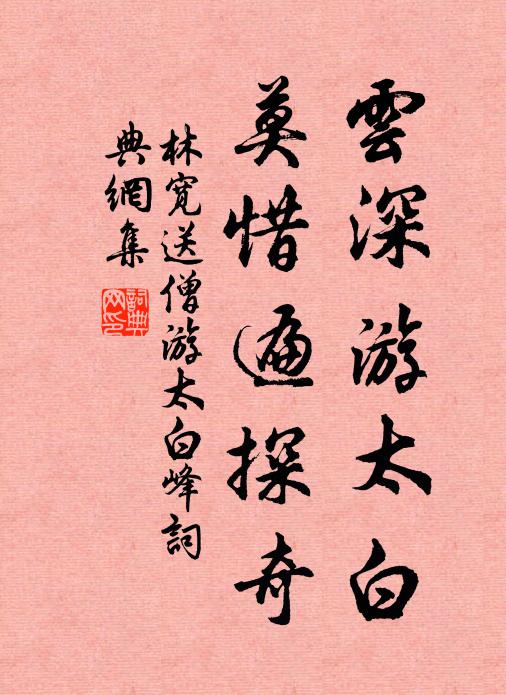 雲深游太白
莫惜遍探奇
林寬送僧游太白峰詞
典網集
詞典網印